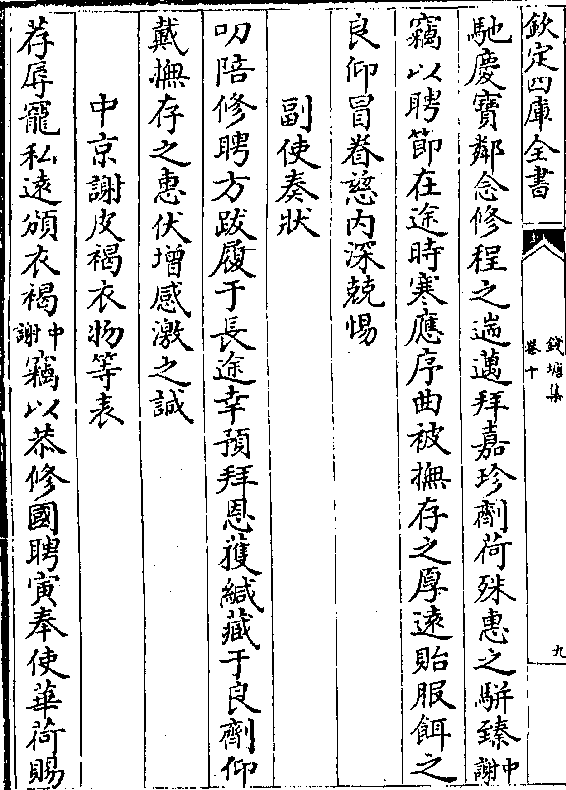 欽定四庫全書
錢塘集
卷十
九
馳慶寶鄰念修程之遄邁拜嘉珍劑荷殊惠之騈臻中謝
竊以聘節在途時寒應序曲被撫存之厚遠貽服餌之
良仰冒眷慈内深兢惕
副使奏狀
叨陪修聘方跋履于長途幸預拜恩獲緘藏于良劑仰
戴撫存之惠伏增感激之誠
中京謝皮褐衣物等表
荐辱寵私遠頒衣褐中謝竊以恭修國聘寅奉使華荷賜